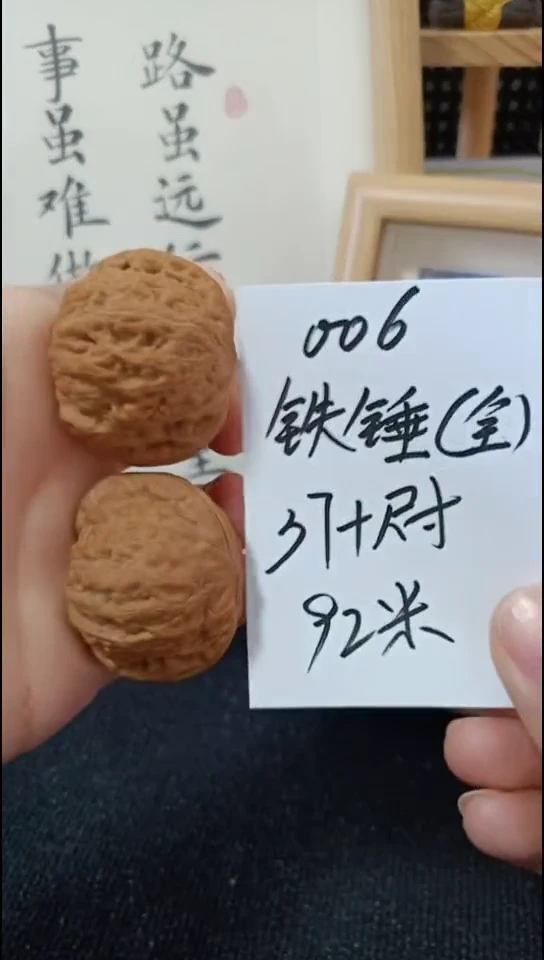 路虽远
事虽难做
006
铁锤(全)
37+尺寸
92米